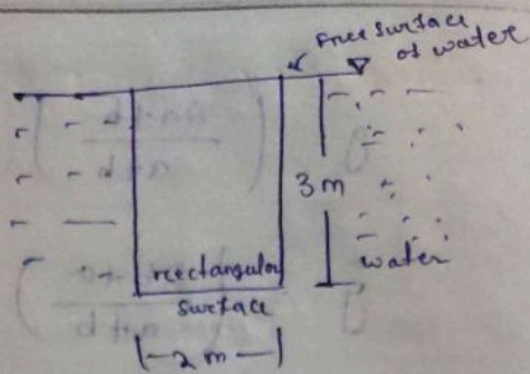 Free surface
of water
3 m
water
rectangular
surface
2 m